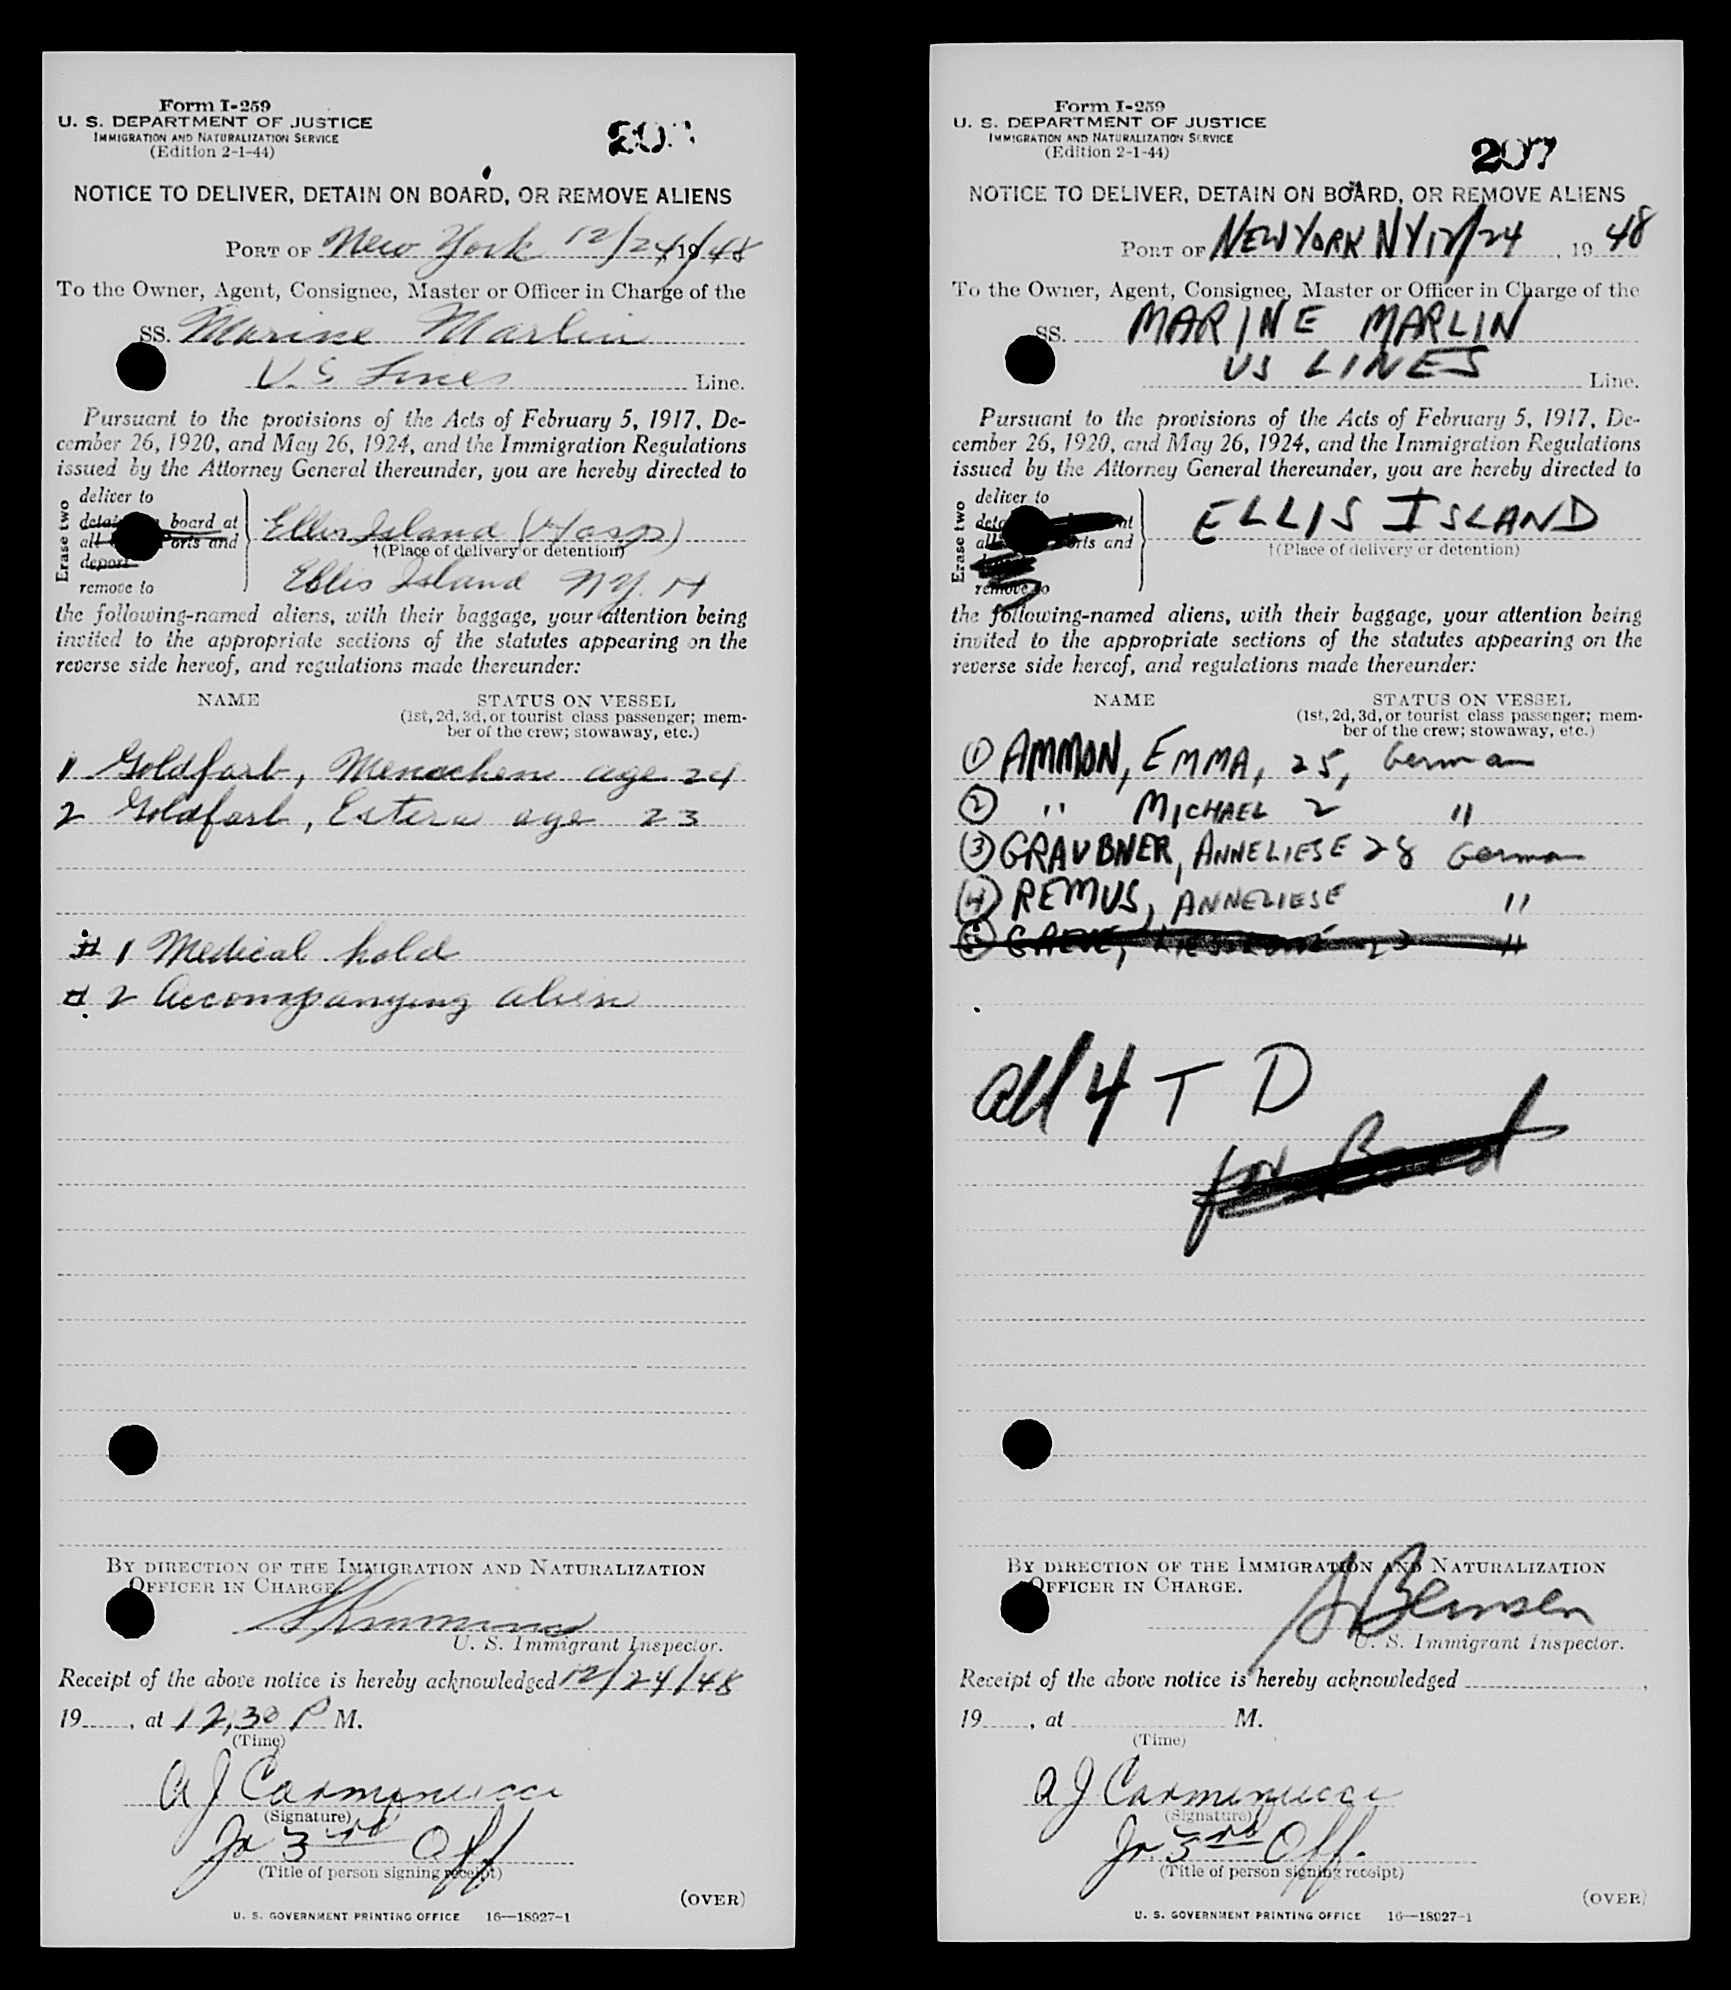 Form I-259
U. S. DEPARTMENT OF JUSTICE
IMMIGRATION AND NATURALIZATION SERVICE
(Edition 2-1-44)
NOTICE TO DELIVER, DETAIN ON BOARD, OR REMOVE ALIENS
PORT OF New York 12/24, 1948
To the Owner, Agent, Consignee, Master or Officer in Charge of the
SS. Marine Marlin
U.S Lines Line.
Pursuant to the provisions of the Acts of February 5, 1917, De-
cember 26, 1920, and May 26, 1924, and the Immigration Regulations
issued by the Attorney General thereunder, you are hereby directed to
Erase two
deliver to
board at
and
deport
remove to
Ellis Island (Hosp)
†(Place of delivery or detention)
Ellis Island NY. H
the following-named aliens, with their baggage, your attention being
invited to the appropriate sections of the statutes appearing on the
reverse side hereof, and regulations made thereunder:
NAME STATUS ON VESSEL
(1st, 2d, 3d, or tourist class passenger; mem-
ber of the crew; stowaway, etc.)
1 Goldfarb, Menachem age 24
2 Goldfarb, Estera age 23
# 1 Medical hold
# 2 Accompanying alien
BY DIRECTION OF THE IMMIGRATION AND NATURALIZATION
OFFICER IN CHARGE.
U. S. Immigrant Inspector.
Receipt of the above notice is hereby acknowledged 12/24/48
19____, at 12,30 P M.
(Time)
A J Carmenucci
(Signature)
Jr 3rd Off
(Title of person signing receipt)
(OVER)
U. S. GOVERNMENT PRINTING OFFICE 16—18927-1
Form I-259
U. S. DEPARTMENT OF JUSTICE
IMMIGRATION AND NATURALIZATION SERVICE
(Edition 2-1-44)
207
NOTICE TO DELIVER, DETAIN ON BOARD, OR REMOVE ALIENS
PORT OF NEW YORK NY 12/24, 19 48
To the Owner, Agent, Consignee, Master or Officer in Charge of the
SS. MARINE MARLIN
US LINES Line.
Pursuant to the provisions of the Acts of February 5, 1917, De-
cember 26, 1920, and May 26, 1924, and the Immigration Regulations
issued by the Attorney General thereunder, you are hereby directed to
Erase two
deliver to
and
remove to
ELLIS ISLAND
†(Place of delivery or detention)
the following-named aliens, with their baggage, your attention being
invited to the appropriate sections of the statutes appearing on the
reverse side hereof, and regulations made thereunder:
NAME STATUS ON VESSEL
(1st, 2d, 3d, or tourist class passenger; mem-
ber of the crew; stowaway, etc.)
① AMMON, EMMA, 25, German
② " MICHAEL 2 "
③ GRAUBNER, ANNELIESE 28 German
④ REMUS, ANNELIESE "
all 4 T D
for Board
BY DIRECTION OF THE IMMIGRATION AND NATURALIZATION
OFFICER IN CHARGE.
U. S. Immigrant Inspector.
Receipt of the above notice is hereby acknowledged ____,
19____, at ____ M.
(Time)
A J Carmenucci
(Signature)
Jr. 3rd Off.
(Title of person signing receipt)
(OVER)
U. S. GOVERNMENT PRINTING OFFICE 16—18927-1